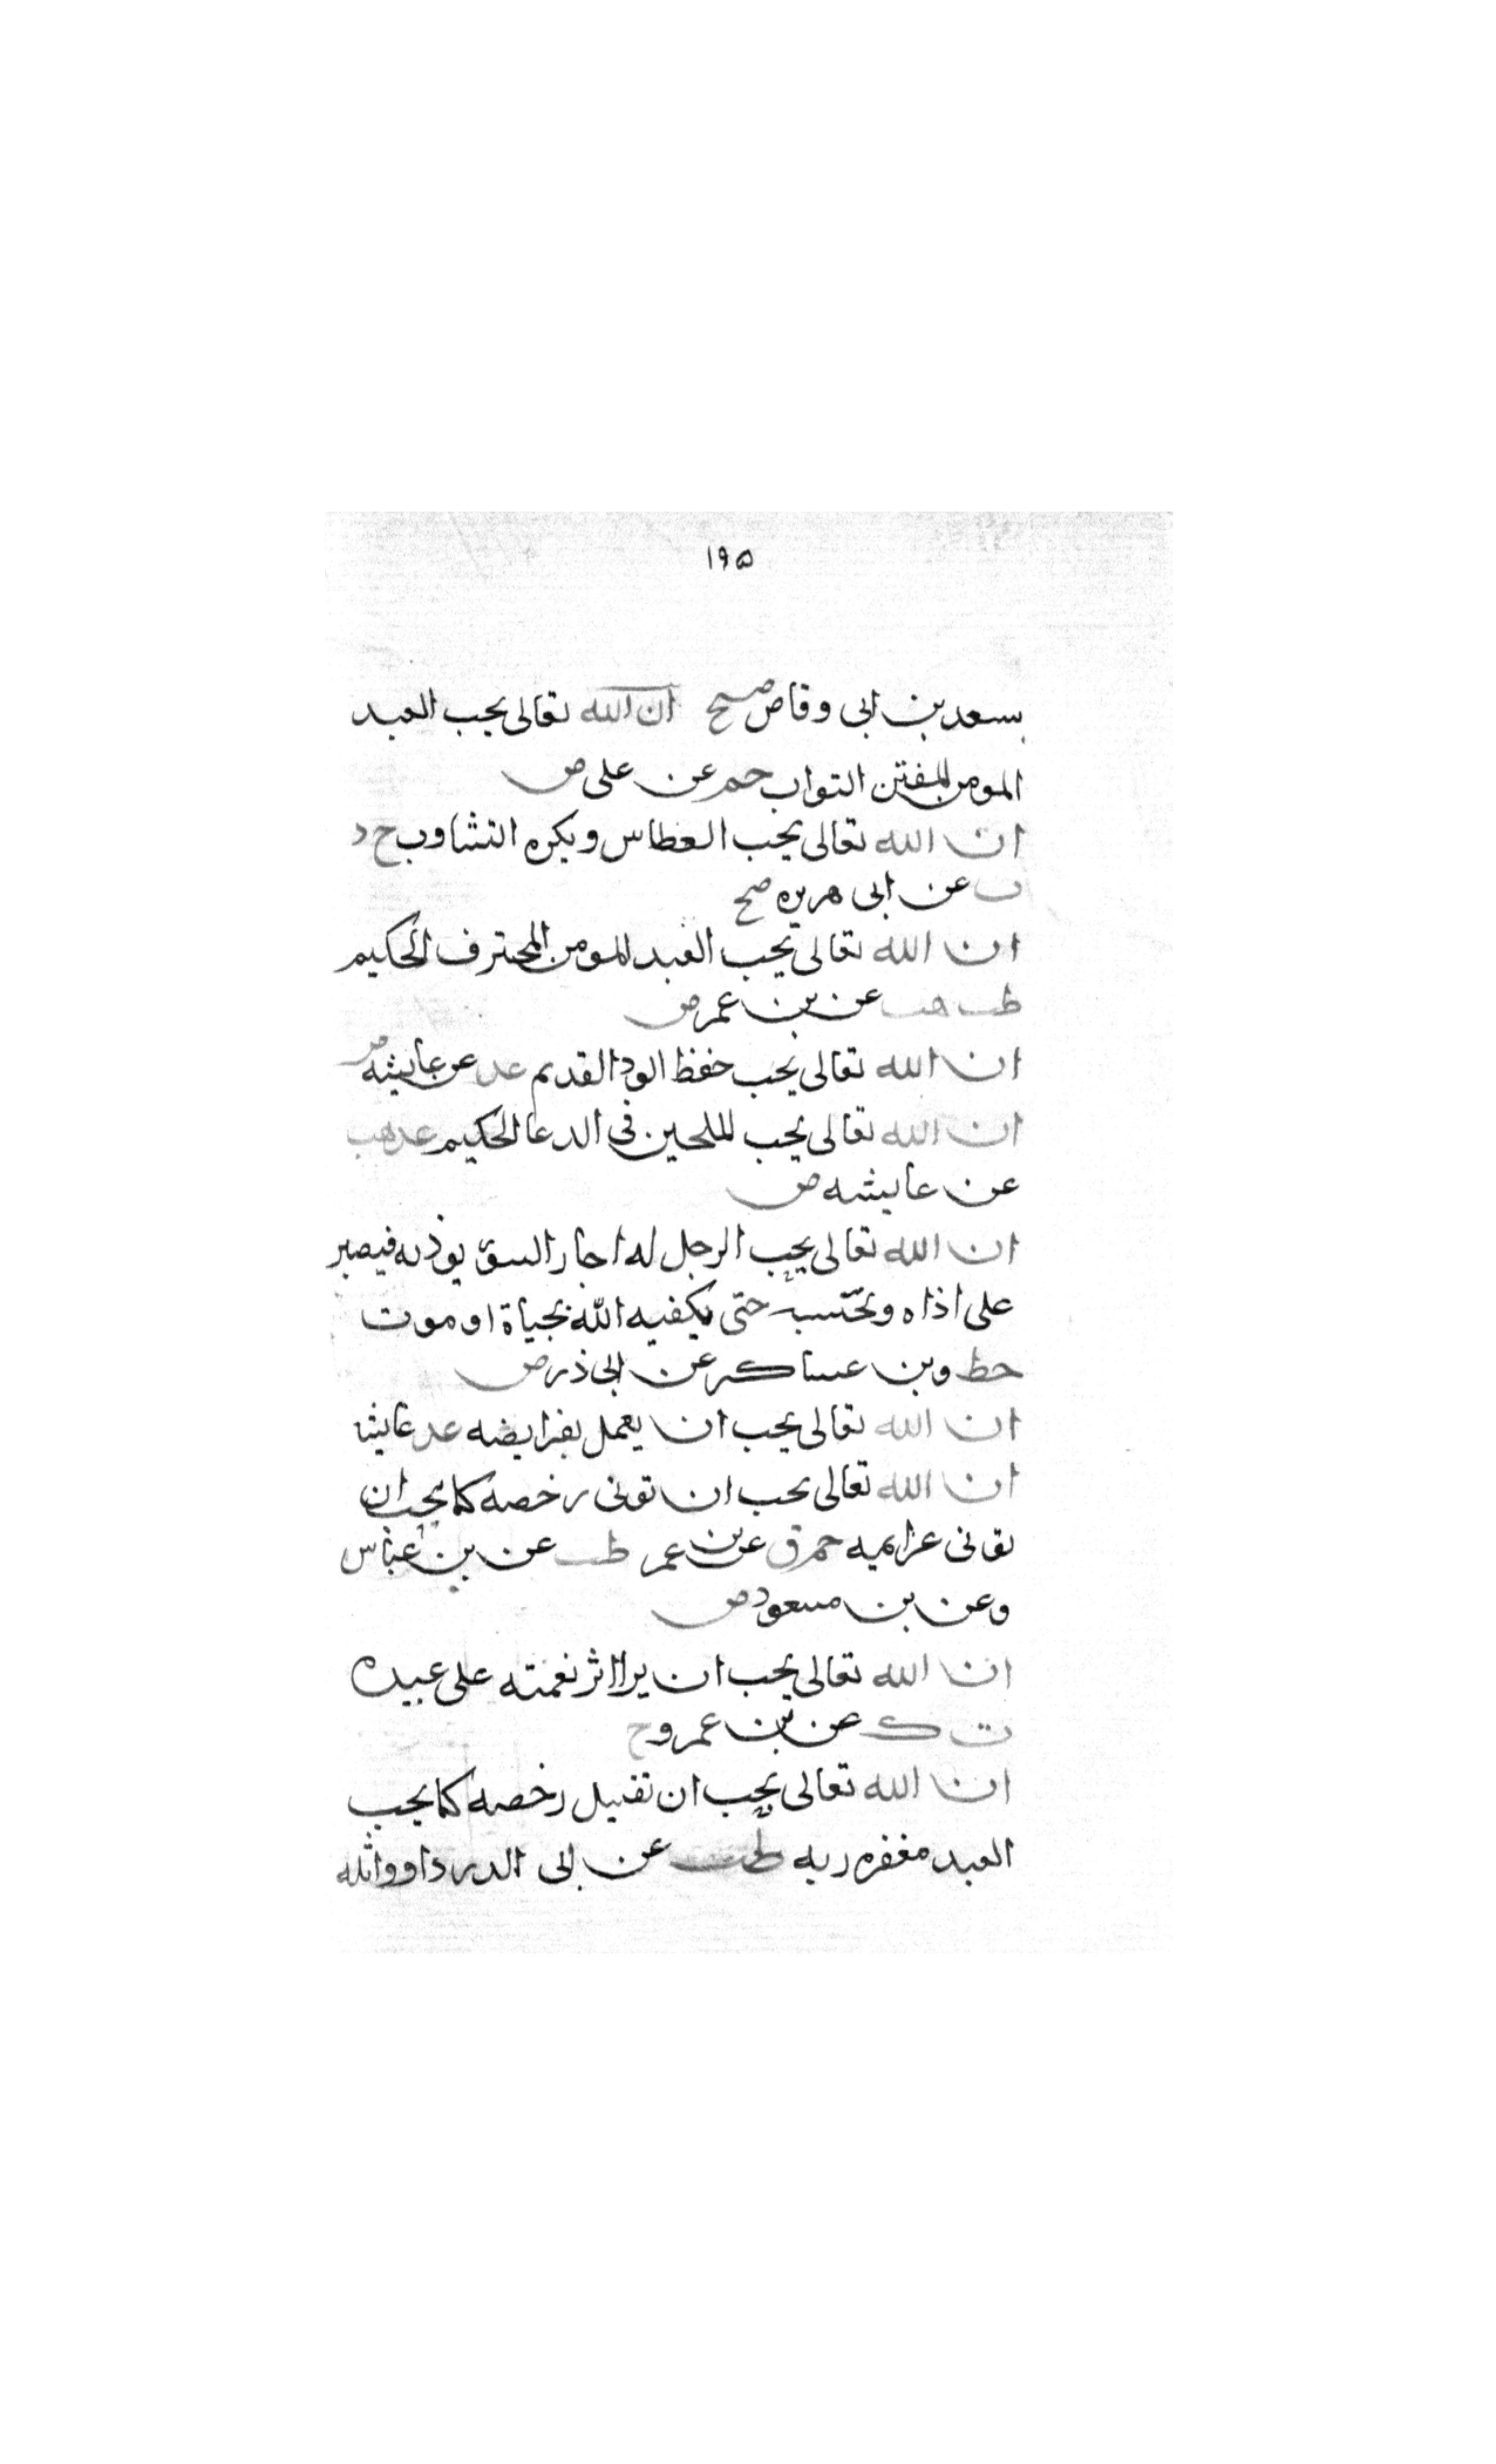 ١٩٥
سعد بن ابى وقاص صح ان الله تعالى يحب العبد
المومن المفتن التواب حم عن على ض
ان الله تعالى يحب العطاس ويكره التثاوب خ د
ت عن ابى هريره صح
ان الله تعالى يحب العبد المومن المحترف الحكيم
طب هب عن بن عمر ض
ان الله تعالى يحب حفظ الود القديم عد عن عايشه ض
ان الله تعالى يحب الملحين فى الدعا الحكيم عد هب
عن عايشه ض
ان الله تعالى يحب الرجل له الجار السو يوذيه فيصبر
على اذاه ويحتسبه حتى يكفيه الله بحياة او موت
خط وبن عساكر عن ابى ذر ض
ان الله تعالى يحب ان يعمل بفرايضه عد عايشه
ان الله تعالى يحب ان توتى رخصه كما يحب ان
توتى عزايمه حم ق عن بن عمر طب عن بن عباس
وعن بن مسعود ض
ان الله تعالى يحب ان يرا اثر نعمته على عبده
ت ك عن بن عمرو ح
ان الله تعالى يحب ان تقبل رخصه كما يحب
العبد مغفره ربه طب عن ابى الدردا وواثله